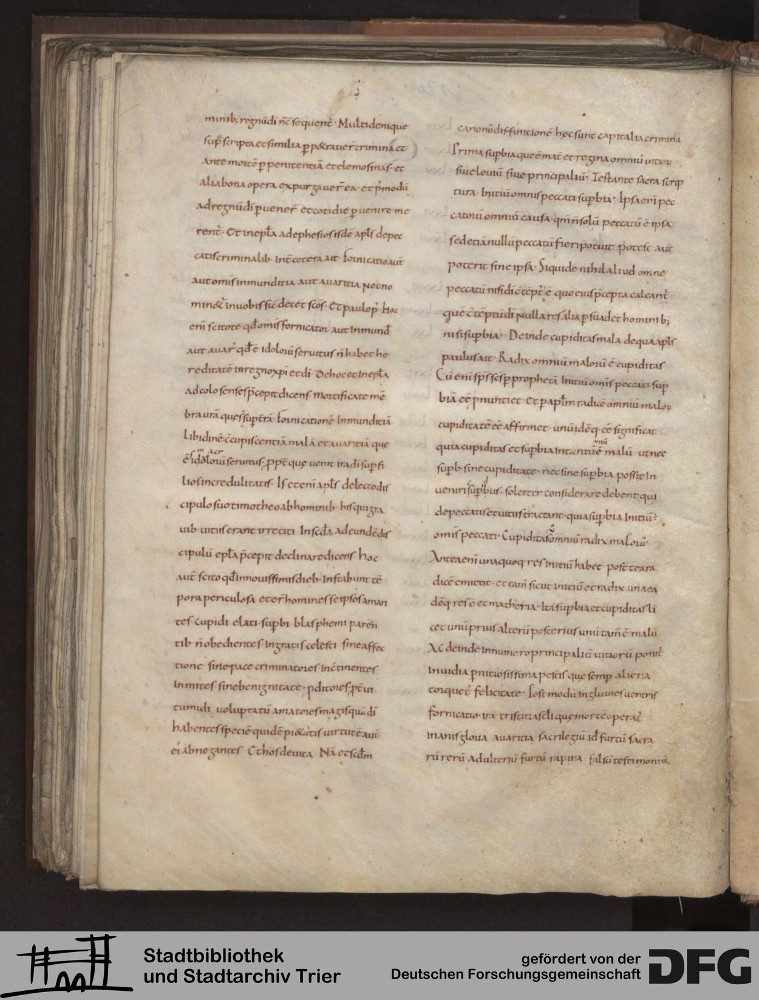 minib, regnū dī nc̄ sequent̄. Multi denique
sup̄ scripta et similia p̄p&raver̄ crimina et
Ante mortē p̄ penitentiā et elemosinas. et
alia bona opera expurgaver̄ ea. et p̄ modū
ad regnū dī p̄vener̄ et cotidie p̄venire me
rent̄. Et in epl̄a ad ephesios isde apl̄s de pec
catis criminalib. int̄ cetera ait. fornicatio aut
aut omīs inmunditia aut avaritia nec no
min&̄ in vobis sic̄ decet scōs. Et paulo p̄. hoc
enī scitote qd̄ omīs fornicator aut inmund̄
aut avar̄ qd̄ ē idoloru servitus n̄ habet he
reditatē in regno xp̄i et dī. De hoc et in epl̄a
ad colosenses p̄cepit dicens. mortificate mē
bra vr̄a que s̄t sup̄ terrā. fornicationē inmunditiā
libidinē c̄cupiscentiā malā et avaritiā que
ē idoloru servitus. ppt̄ que venit ira dī sup̄ fi
lios incredulitatis. Iste enī apl̄s delecto dis
cipulo suo timotheo ab hominib. his qui gra
vib. vitiis erant irretiti. In scd̄a ad eundē dis
cipulū epl̄a p̄cepit declinare dicens. hoc
aut̄ scito qd̄ in novissimis dieb. instabunt tē
pora periculosa et er̄ homines se ipsos aman
tes cupidi elati. sup̄bi blasphemi paren̄
tib. n̄ obedientes ingrati scelesti sine affec
tione sine pace criminatores inc̄tinentes
inmites sine benignitate. p̄ditores. p̄tvi
tumidi voluptatū amatores magis quā dī
habentes speciē quidē pi&atis virtutē aut̄
ei abnegantes. Et hos devita. Nā et scd̄m
canonū diffinitionē hęc sunt capitalia crimina
Prima sup̄bia que ē mat̄ et regina omniū vitioru
sive levium sive principaliū. Testante sacra scrip
tura. Initiū omnis peccati sup̄bia. Ipsa enī pec
catoru omniū causa. qm̄ n̄ solū peccatū ē ipsa
sed etiā nullū peccatū fieri potuit potest aut
poterit sine ipsa. Siquidē nihil aliud omne
peccatū nisi dī c̄tēpt̄ ē quo eius p̄cepta calcant̄
que c̄tēptū dī nulla res alia p̄suadet hominib;
nisi sup̄bia. Deinde cupiditas mala de qua apl̄s
paulus ait. Radix omniū maloru ē cupiditas
Cū enī sp̄s sc̄s p̄ prophetā initiū omīs peccati sup̄
biā eē p̄nuntiet. Et p̄ apl̄m radicē omniū malor̄
cupiditatē eē affirmet. unū idēq. eē significat
quia cupiditas et sup̄bia int̄ antū ē malū. ut nec
sup̄b. sine cupiditate nec sine sup̄bia possit in
veniri cupidus. solerter considerare debent qui
de peccatis et vitiis tractant. quia sup̄bia initiū ē
omīs peccati. Cupiditas omniū radix maloru.
Ante enī unaquęq. res initiū habet post ea ra
dicē emittit. et tam̄ sicut initiū et radix una ea
dēq. res ē et matheria. Ita sup̄bia et cupiditas li
cet unū prius alterū posterius unū tam̄ ē malū
Ac deinde in numero principaliū vitioru ponit̄
Invidia p̄nitiosissima pestis que semp̄ aliena
torquet̄ felicitate. Post modū ingluvies ventris
fornicatio. ira tristitia scl̄i que morte operat̄
inanis gloria. avaritia. sacrilegiū id̄ furtū sacra
rū rerū adulteriū furtū rapina falsū testimoniū.
Stadtbibliothek
und Stadtarchiv Trier
gefördert von der
Deutschen Forschungsgemeinschaft
DFG